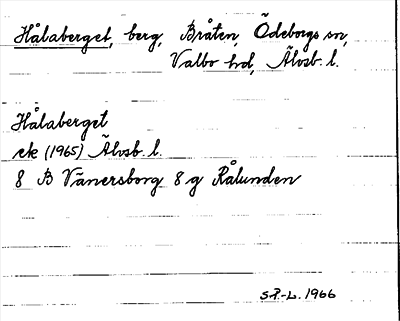 Hålaberget, berg, Bråten, Ödeborgs sn,
Valbo hd, Älvsb. l.
Hålaberget
ek (1965) Älvsb. l.
8 B Vänersborg 8 g Rålunden
S.P.-L. 1966